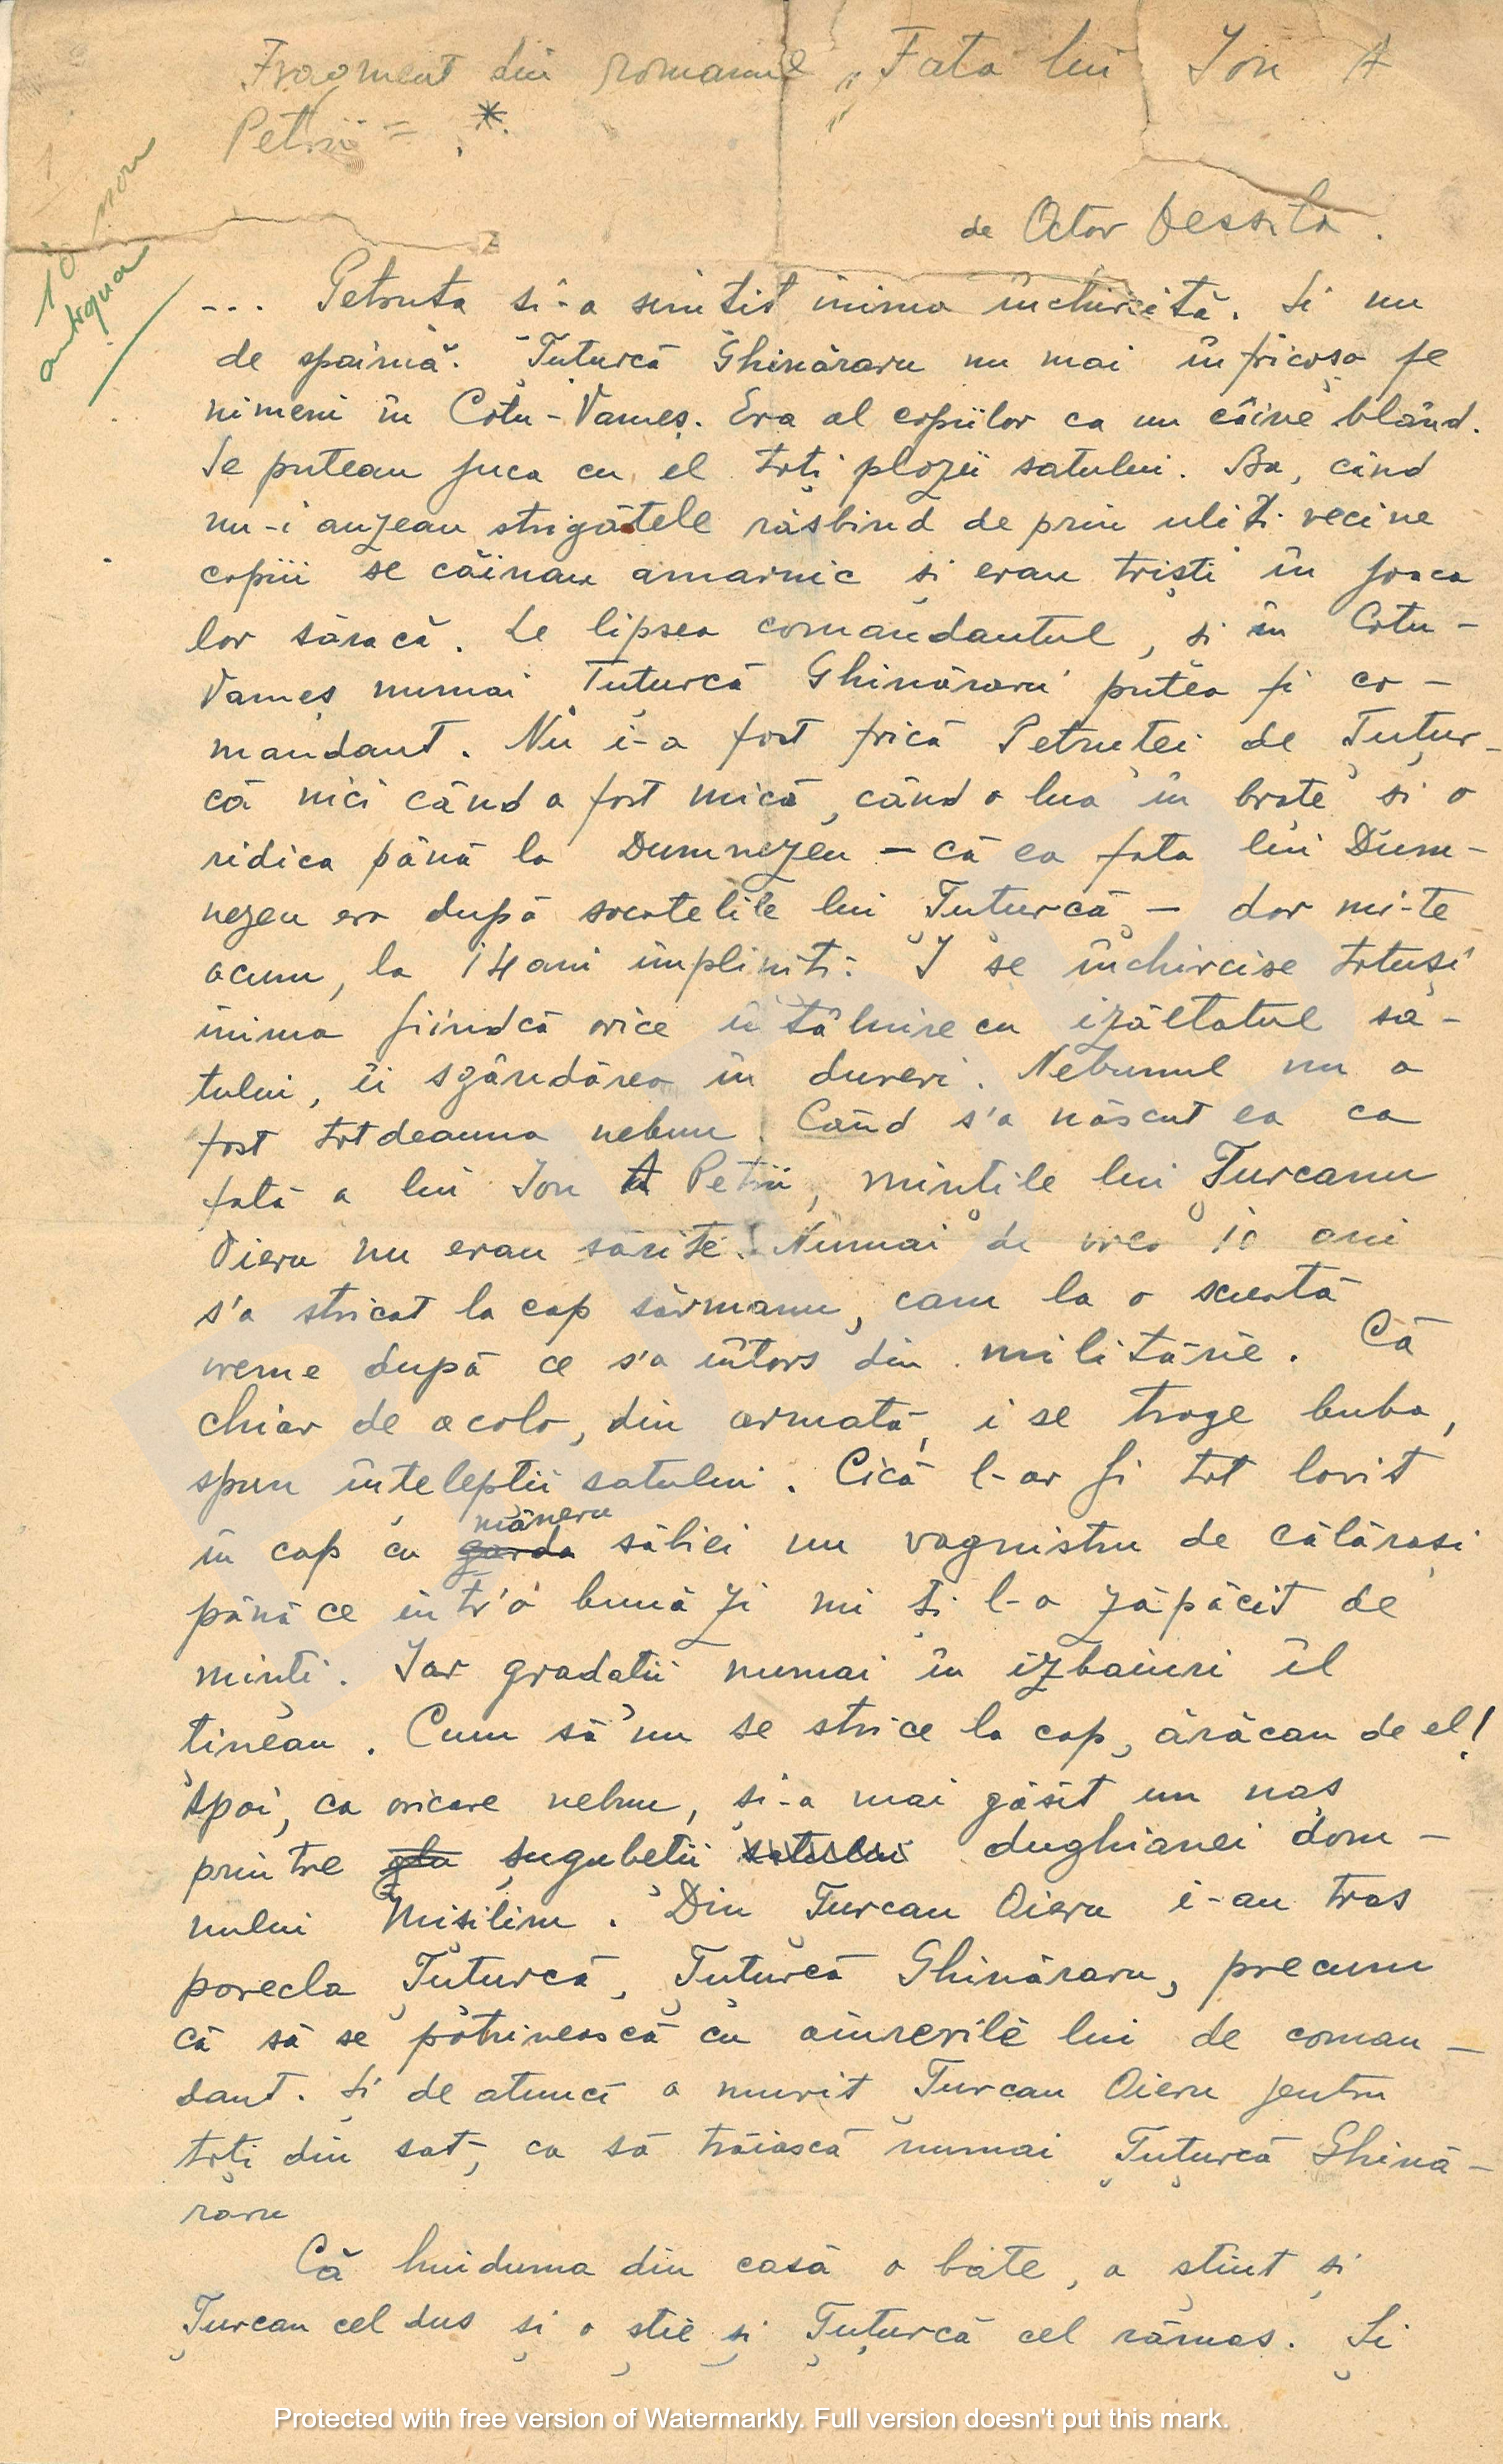 Fragment din romanul „Fata lui Ion A
Petrii" = . *
de Octav Dessila.
10
antiqua
... Petruța și-a simțit inima închircită. Și nu
de spaimă. Țuțurcă Ghinăraru nu mai înfricoșa pe
nimeni în Cotu-Vameș. Era al copiilor ca un câine blând.
Se puteau juca cu el toți plozii satului. Ba, când
nu-i auzeau strigătele răsbind de prin uliți vecine
copiii se căinau amarnic și erau triști în joaca
lor săracă. Le lipsea comandantul, și în Cotu-
Vameș numai Țuțurcă Ghinăraru putea fi co-
mandant. Nu i-a fost frică Petruței de Țuțur-
că nici când a fost mică, când o lua în brațe și o
ridica până la Dumnezeu – că ea fata lui Dum-
nezeu era după socotelile lui Țuțurcă – dar mi-te
acum, la 14 ani împliniți. I se închircise totuși
inima fiindcă orice întâlnire cu izăltatul sa-
tului, îi sgândărea în dureri. Nebunul nu a
fost totdeauna nebun. Când s'a născut ea ca
fată a lui Ion A Petrii, mințile lui Țurcanu
Oieru nu erau sărite. Numai de vreo 10 ani
s'a stricat la cap sărmanu, cam la o scurtă
vreme după ce s'a întors din militărie. Că
chiar de acolo, din armată, i se trage buba,
spun înțelepții satului. Cică l-ar fi tot lovit
mâneru
în cap cu garda săbiei un vagmistru de călărași
până ce într'o bună zi mi ți l-a zăpăcit de
minți. Iar gradații numai în izbaiuri îl
țineau. Cum să nu se strice la cap, ărăcan de el!
Apoi, ca oricare nebun, și-a mai găsit un naș
printre șugubeții satului dughianei dom-
nului Misilim. Din Țurcan Oieru i-au tras
porecla Țuțurcă, Țuțurcă Ghinăraru, precum
că să se potrivească cu aiurerile lui de coman-
dant. Și de atunci a murit Țurcan Oieru pentru
toți din sat, ca să trăiască numai Țuțurcă Ghină-
raru
Că huiduma din casă o bate, a știut și
Țurcan cel dus și o știe și Țuțurcă cel rămas. Și
Protected with free version of Watermarkly. Full version doesn't put this mark.